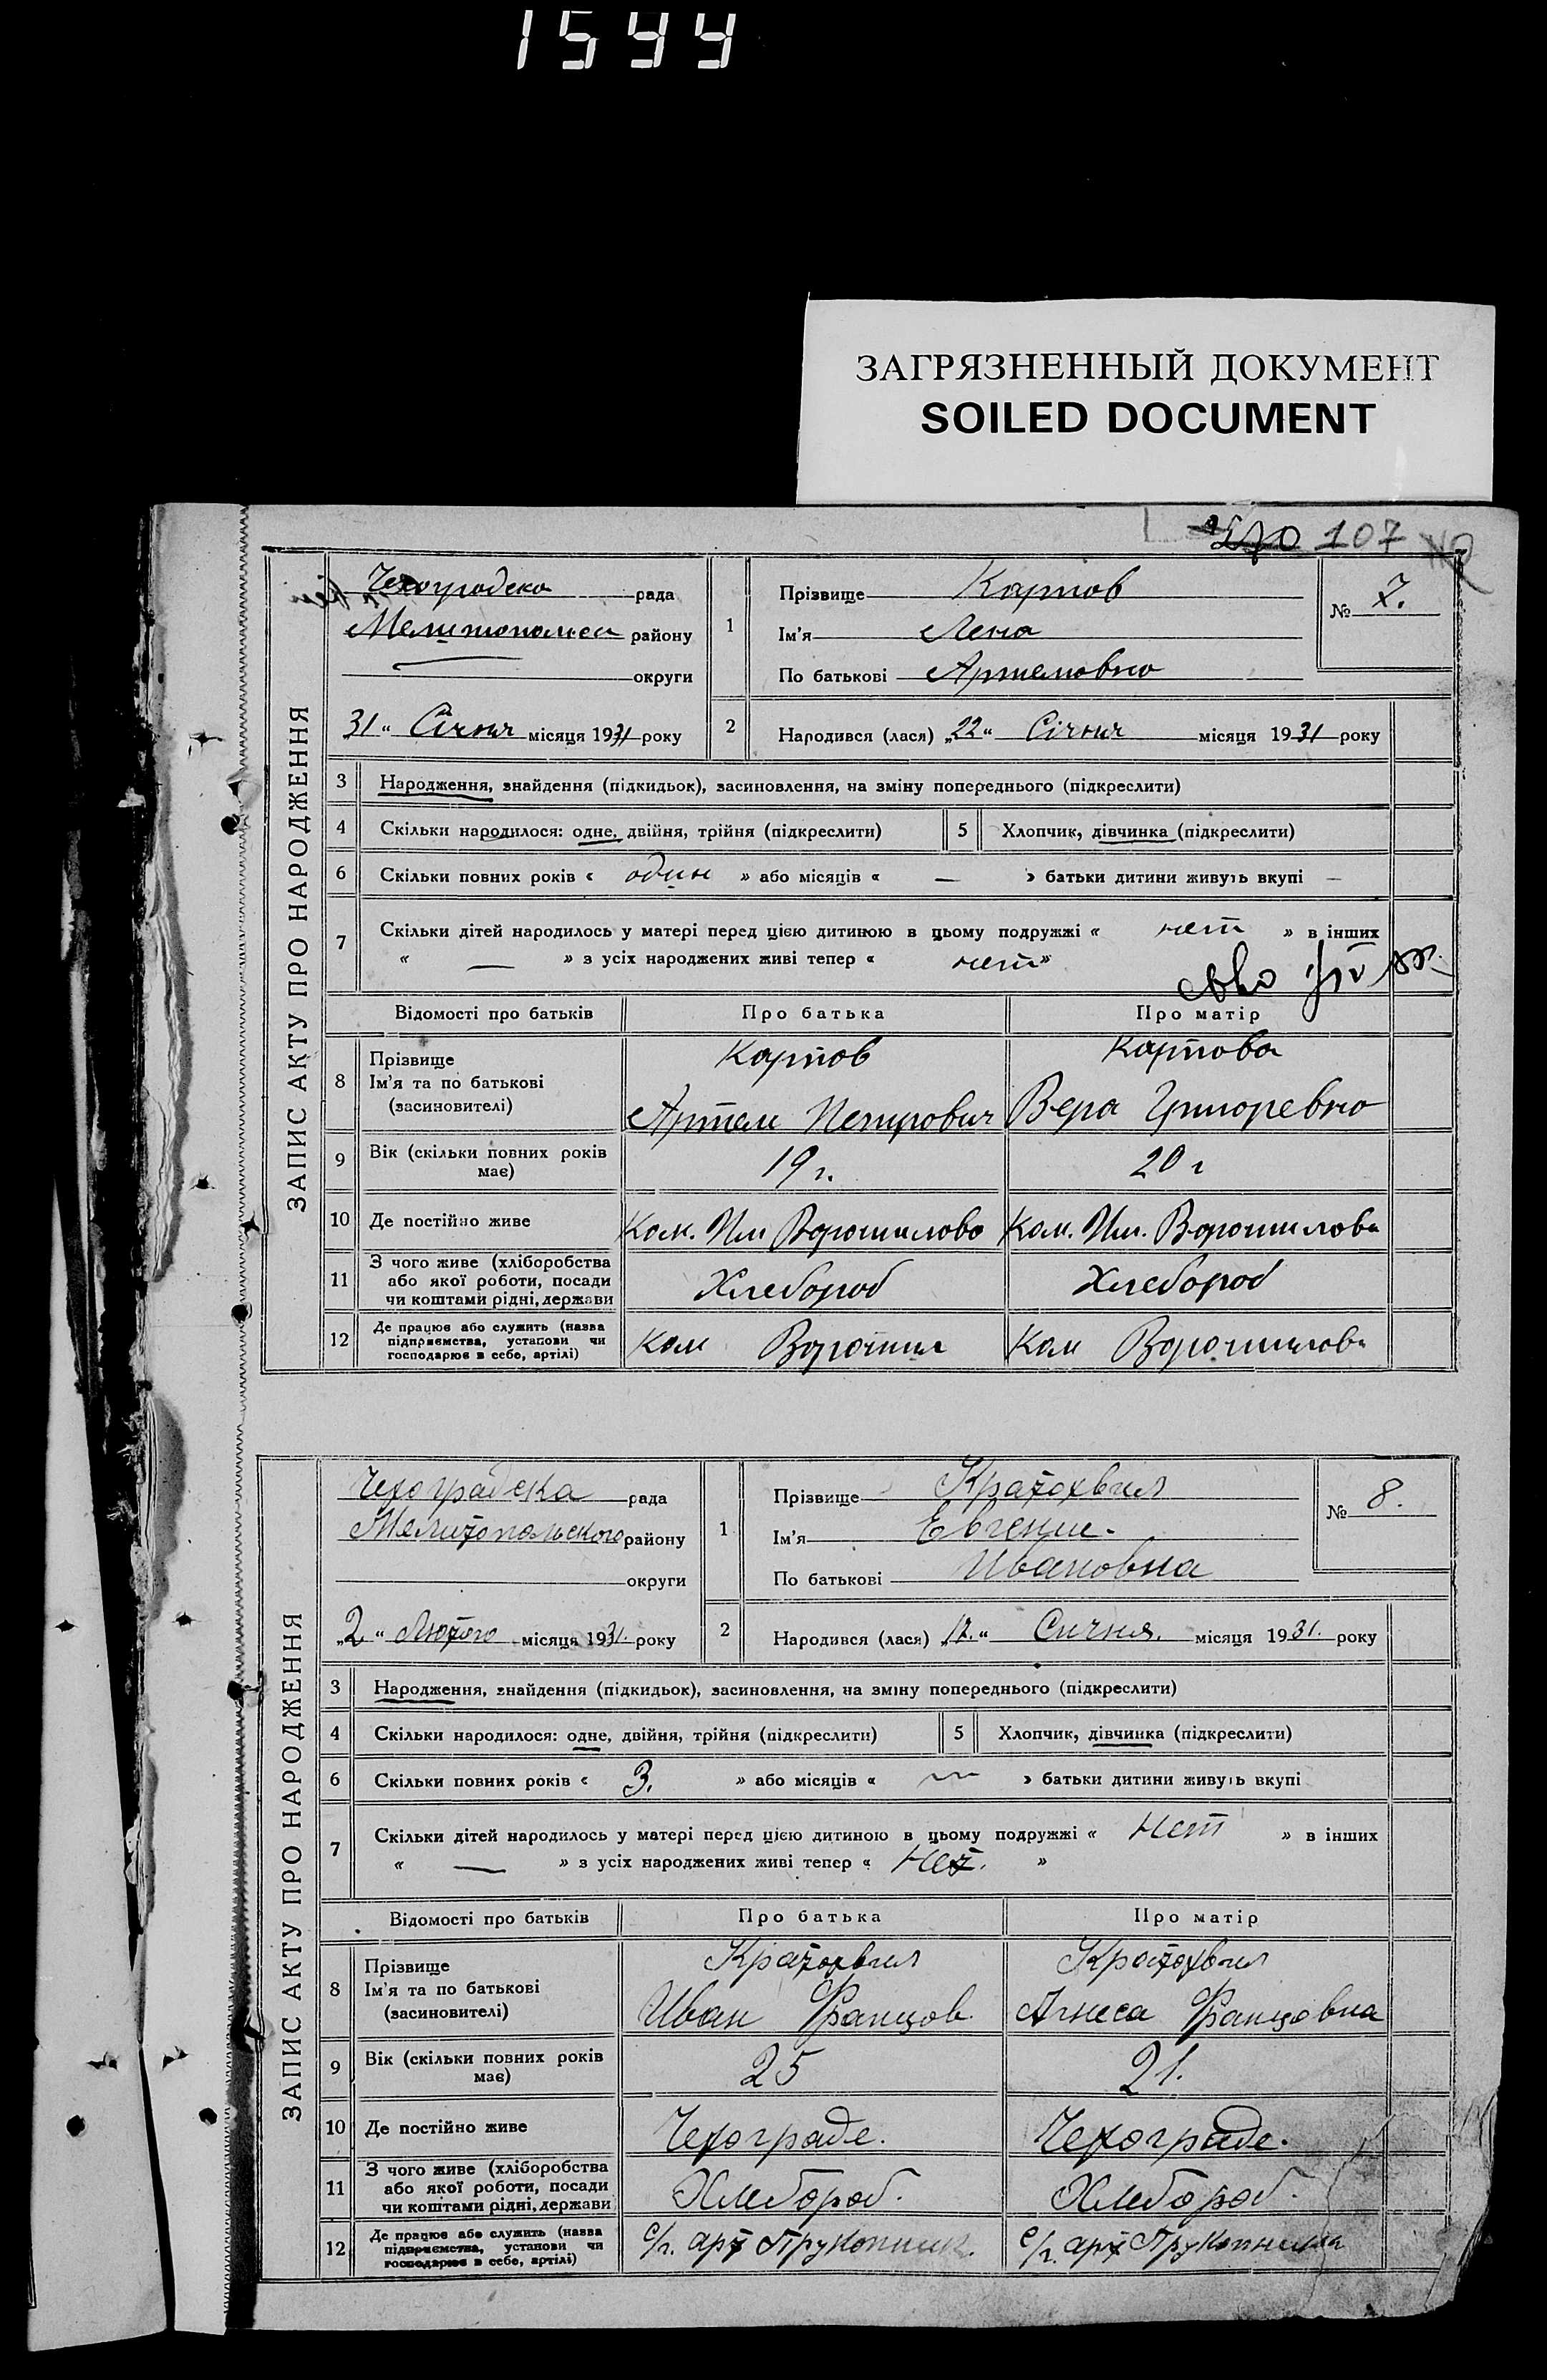 1544
ЗАГРЯЗНЕННЫЙ ДОКУМЕНТ
SOILED DOCUMENT
107
ЗАПИС АКТУ ПРО НАРОДЖЕННЯ
Чехоградска рада
Мелитопольск району
округи
31 " Січня місяця 1931 року
1 Прізвище Карпов
Ім'я Лена
По батькові Артемовна
№ 7.
2 Народився (лася) „22" Січня місяця 1931 року
3 Народження, знайдення (підкидьок), засиновлення, на зміну попереднього (підкреслити)
4 Скільки народилося: одне, двійня, трійня (підкреслити) 5 Хлопчик, дівчинка (підкреслити)
6 Скільки повних років « один » або місяців « — » батьки дитини живуть вкупі —
7 Скільки дітей народилось у матері перед цією дитиною в цьому подружжі « нет » в інших
« — » з усіх народжених живі тепер « нет »
Відомості про батьків Про батька Про матір
8 Прізвище Ім'я та по батькові (засиновителі)
Карпов Карпова
Артем Петрович Вера Григоревна
9 Вік (скільки повних років має) 19 г. 20 г
10 Де постійно живе Ком. Им Ворошилова Ком. Им. Ворошилова
11 З чого живе (хліборобства або якої роботи, посади чи коштами рідні, держави Хлебороб Хлебороб
12 Де працює або служить (назва підприємства, установи чи господарює в себе, артілі) Ком Ворошил Ком Ворошилова
ЗАПИС АКТУ ПРО НАРОДЖЕННЯ
Чехоградска рада
Мелитопольского району
округи
„2 " Лютого місяця 1931. року
1 Прізвище Кратохвил
Ім'я Евгение.
По батькові Ивановна
№ 8.
2 Народився (лася) „12." Сичня. місяця 1931. року
3 Народження, знайдення (підкидьок), засиновлення, на зміну попереднього (підкреслити)
4 Скільки народилося: одне, двійня, трійня (підкреслити) 5 Хлопчик, дівчинка (підкреслити)
6 Скільки повних років « 3. » або місяців « — » батьки дитини живуть вкупі
7 Скільки дітей народилось у матері перед цією дитиною в цьому подружжі « Нет » в інших
« — » з усіх народжених живі тепер « Нет. »
Відомості про батьків Про батька Про матір
8 Прізвище Ім'я та по батькові (засиновителі)
Кратохвил Кратохвил
Иван Францов. Агнеса Францовна
9 Вік (скільки повних років має) 25 21.
10 Де постійно живе Чехограде. Чехограде.
11 З чого живе (хліборобства або якої роботи, посади чи коштами рідні, держави Хлебороб. Хлебороб.
12 Де працює або служить (назва підприємства, установи чи господарює в себе, артілі) с/г. арт с/г. арт